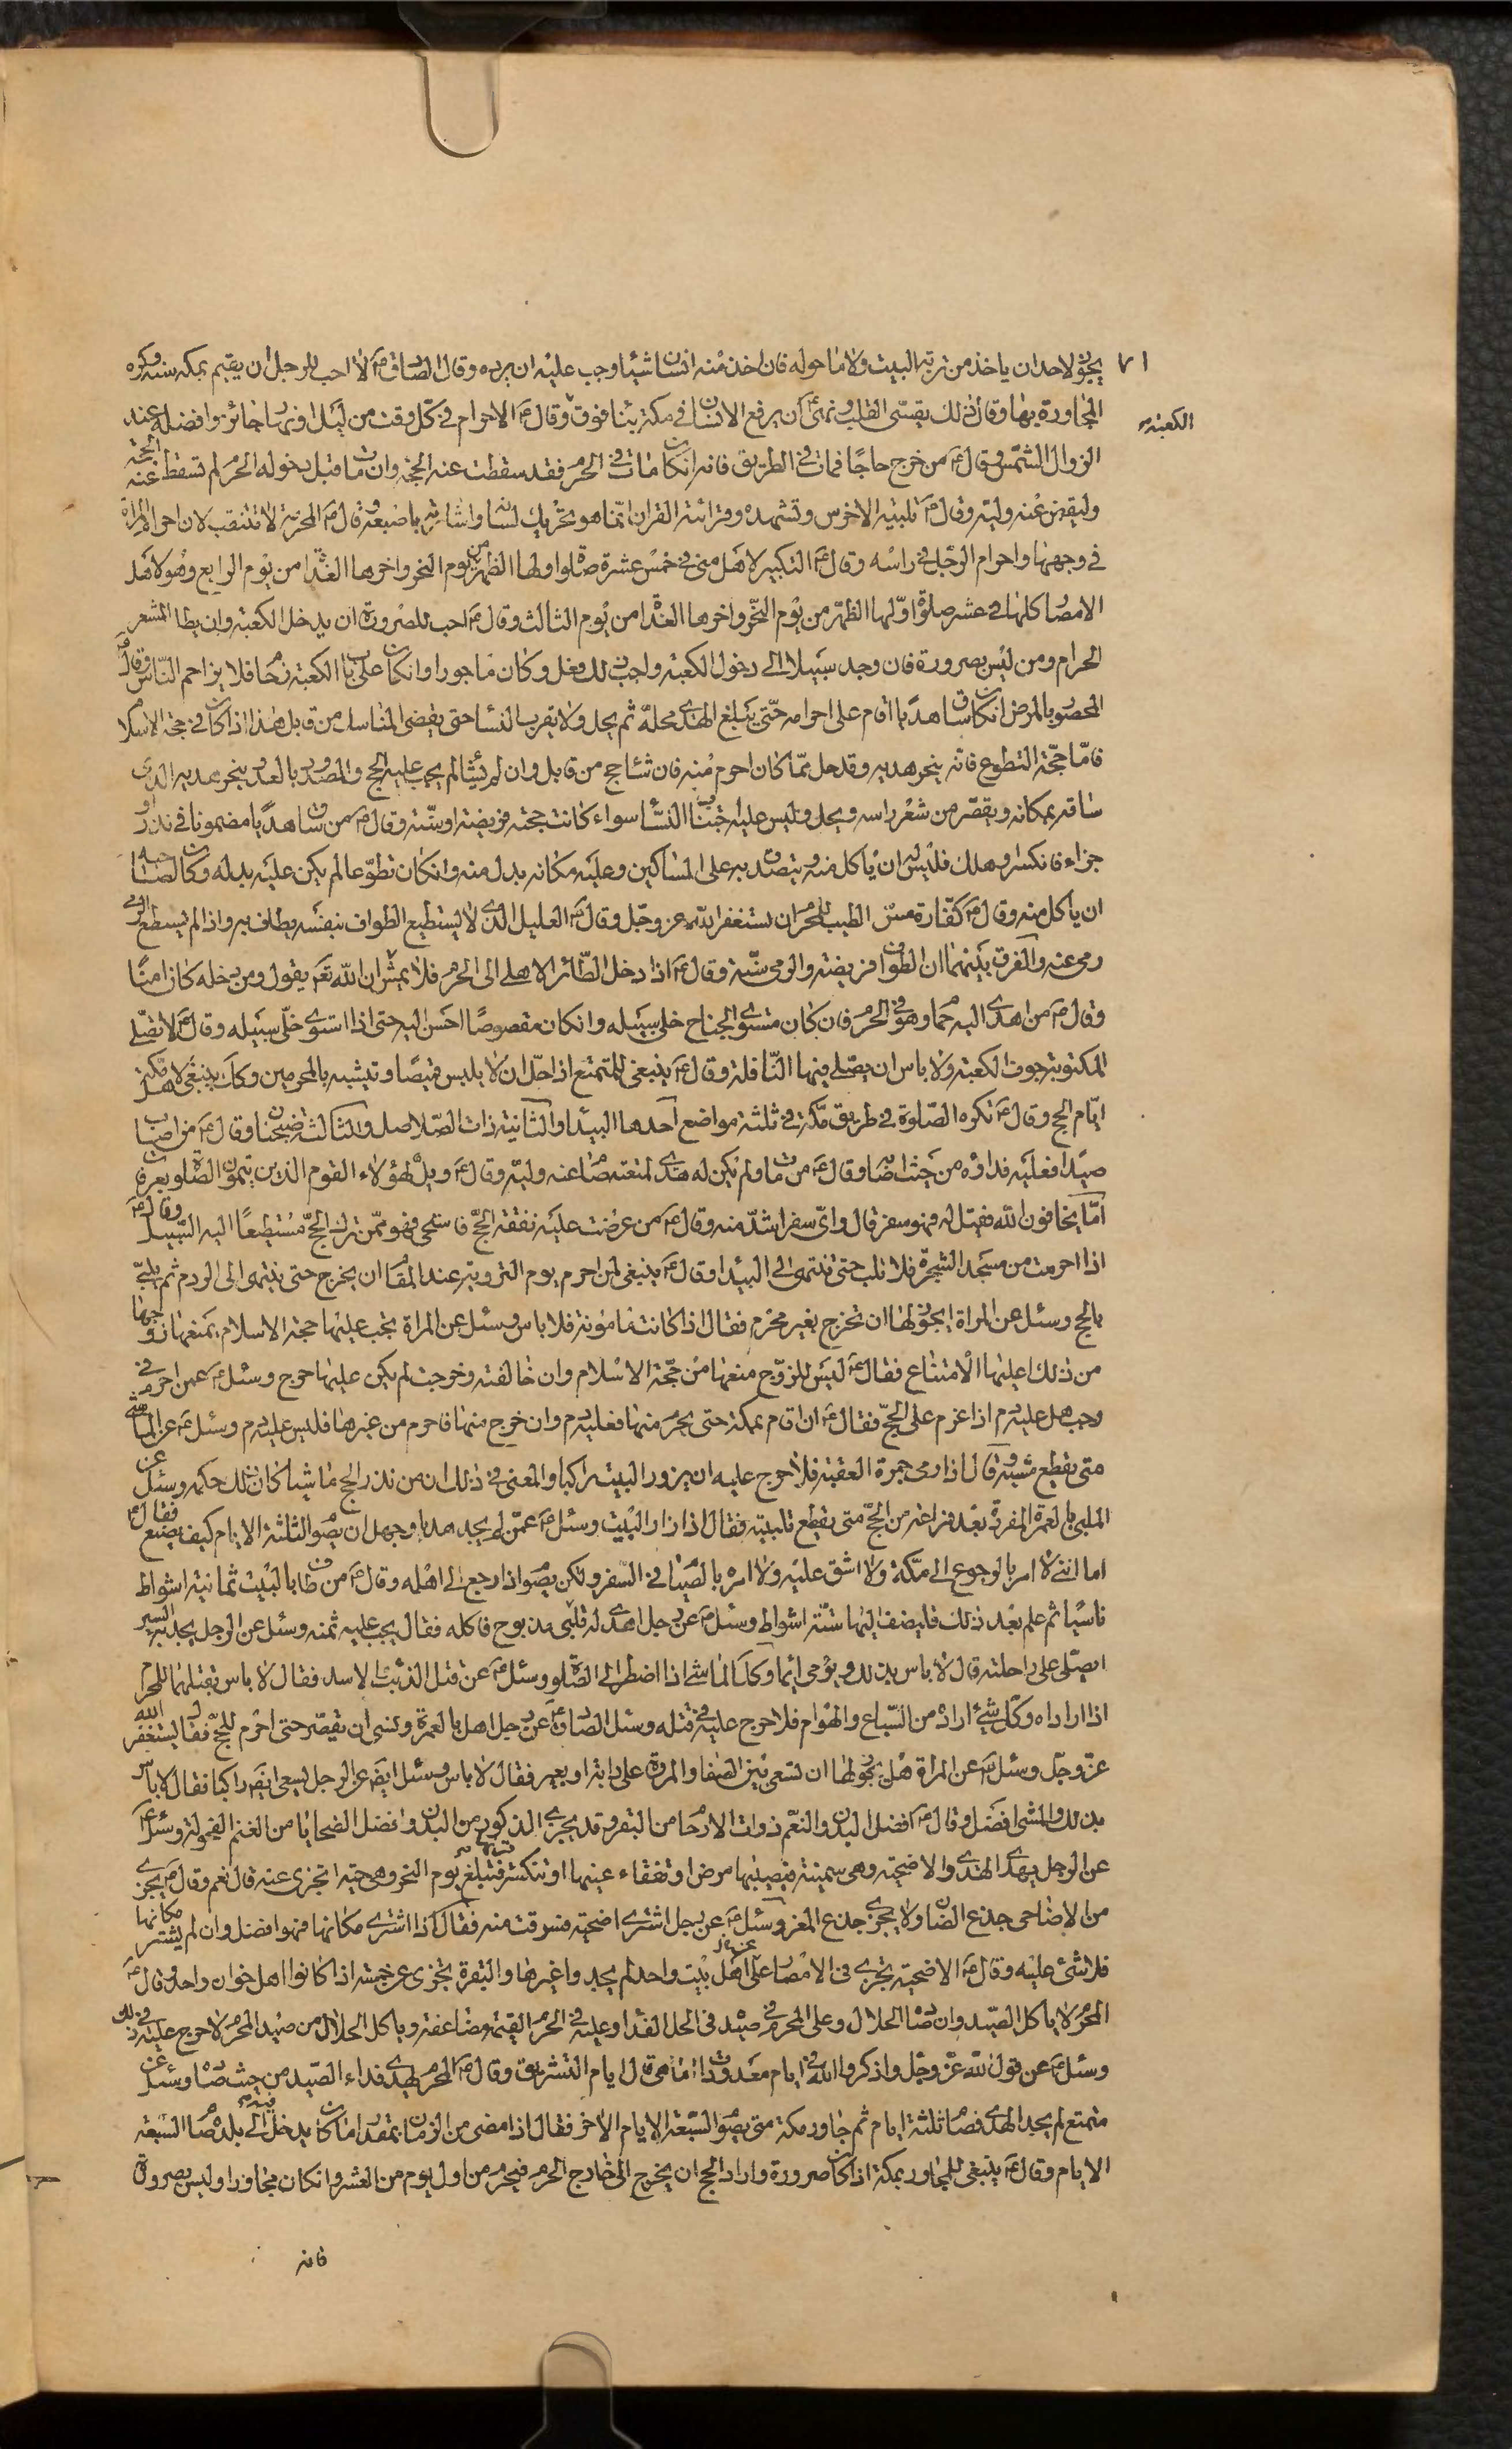 يجوز لاحد ان ياخذ من تربة البيت ولا ما حوله فان اخذ منه انسان شيئا وجب عليه ان يرده وقال الصادق ع لا احب للرجل ان يقيم بمكة سنة وكره
المجاورة بها وقال ذلك يقسى القلب ونهى ان يرفع الانسان في مكة بناء فوق الكعبة وقال ع الاحرام في كل وقت من ليل او نهار جائز وافضله عند
الزوال الشمس وقال ع من خرج حاجا فمات في الطريق فانه ان كان مات في الحرم فقد سقطت عنه الحجة وان مات قبل دخوله الحرم لم تسقط عنه الحجة
وليقض عنه وليه وقال ع تلبية الاخرس وتشهده وقرائته القران انما هو تحريك لسانه واشارته باصبعه وقال ع المحرمة لا تتنقب لان احرام المراة
في وجهها واحرام الرجل في راسه وقال ع التكبير لاهل منى في خمس عشرة صلوة اولها الظهر من يوم النحر واخرها الغداة من يوم الرابع وهو لاهل
الامصار كلها في عشر صلوة اولها الظهر من يوم النحر واخرها الغداة من يوم الثالث وقال ع احب للصرورة ان يدخل الكعبة وان يطا المشعر
الحرام ومن ليس بصرورة فان وجد سبيلا الى دخول الكعبة واحب ذلك فعل وكان ماجورا وان كان على باب الكعبة زحام فلا يزاحم الناس وقال ع
المحصور بالمرض ان كان ساق هديا اقام على احرامه حتى يبلغ الهدى محله ثم يحل ولا يقرب النساء حتى يقضى المناسك من قابل هذا اذا كان في حجة الاسلام
فاما حجة التطوع فانه ينحر هديه وقد حل مما كان احرم منه فان شاء حج من قابل وان لم يشا لم يجب عليه الحج والمصدود بالعدو ينحر هديه الذى
ساقه بمكانه ويقصر من شعر راسه ويحل وليس عليه اجتناب النساء سواء كانت حجته فريضة او سنة وقال ع من ساق هديا مضمونا في نذر او
جزاء فانكسر وهلك فليس له ان ياكل منه ويتصدق به على المساكين وعليه مكانه بدل منه وان كان تطوعا لم يكن عليه بدله وكان لصاحبه
ان ياكل منه وقال ع كفارة مس الطيب للمحرم ان يستغفر الله عز وجل وقال ع العليل الذى لا يستطيع الطواف بنفسه يطاف به واذا لم يسطع الرمى
رمى عنه والفرق بينهما ان الطواف فريضة والرمى سنة وقال ع اذا دخل الطائر الاهلى الى الحرم فلا يمس ان الله تع يقول ومن دخله كان امنا
وقال ع من اهدى اليه حمام وهو في الحرم فان كان مستوى الجناح خلى سبيله وان كان مقصوصا احسن اليه حتى اذا استوى خلى سبيله وقال ع لا تصلى
المكتوبة جوف الكعبة ولا باس ان يصلى فيها النافلة وقال ع ينبغى للمتمتع اذا احل ان لا يلبس قميصا ويتشبه بالمحرمين وكك ينبغى لاهل مكة
ايام الحج وقال ع تكره الصلوة في طريق مكة في ثلثة مواضع احدها البيداء والثانية ذات الصلاصل والثالثة ضجنان وقال ع من اصاب
صيدا فعليه فداؤه من حيث اصابه وقال ع من مات ولم يكن له هدى لمتعته صام عنه وليه وقال ع ويل لهؤلاء القوم الذين يتمون الصلوة بعرفة
اما يخافون الله فقيل له فهو سفر قال واى سفر اشد منه وقال ع من عرضت عليه نفقة الحج فاستحى فهو ممن ترك الحج مستطيعا اليه السبيل وقال ع
اذا احرمت من مسجد الشجرة فلا تلب حتى تنتهى الى البيداء وقال ع ينبغى لمن احرم يوم التروية عند المقام ان يخرج حتى ينتهى الى الردم ثم يلبى
بالحج وسئل عن المراة ايجوز لها ان تخرج بغير محرم فقال اذا كانت مامونة فلا باس وسئل عن المراة يجب عليها حجة الاسلام يمنعها زوجها
من ذلك اعليها الامتناع فقال ع ليس للزوج منعها من حجة الاسلام وان خالفته وخرجت لم يكن عليها حرج وسئل ع عمن احرم في
رجب هل عليه دم اذا عزم على الحج فقال ع ان اقام بمكة حتى يحرم منها فعليه دم وان خرج منها فاحرم من غيرها فليس عليه دم وسئل ع عن الماشى
متى يقطع مشيه قال اذا رمى جمرة العقبة فلا حرج عليه ان يزور البيت راكبا والمعنى في ذلك ان من نذر الحج ماشيا كان ذلك حكمه وسئل عن
الملبى بالعمرة المفردة بعد فراغه من الحج متى يقطع تلبيته فقال اذا زار البيت وسئل ع عمن لم يجد هديا وجهل ان يصوم الثلثة الايام كيف يصنع فقال ع
اما اننى لا امر بالرجوع الى مكة ولا اشق عليه ولا امره بالصيام في السفر ولكن يصوم اذا رجع الى اهله وقال ع من طاف بالبيت ثمانية اشواط
ناسيا ثم علم بعد ذلك فليضف اليها ستة اشواط وسئل ع عن رجل اهدى له ظبى مذبوح فاكله فقال يجب عليه ثمنه وسئل عن الرجل يجد به السير
ايصلى على راحلته قال لا باس بذلك ويومى ايماء وكك الماشى اذا اضطر الى الصلوة وسئل ع عن قتل الذئب والاسد فقال لا باس بقتلهما للمحرم
اذا اراداه وكل شئ اراده من السباع والهوام فلا حرج عليه في قتله وسئل الصادق ع عن رجل اهل بالعمرة ونسى ان يقصر حتى احرم للحج فقال يستغفر الله
عز وجل وسئل ع عن المراة هل يجوز لها ان تسعى بين الصفا والمروة على دابة او بعير فقال لا باس وسئل ايض عن الرجل يسعى ايض راكبا فقال لا باس
بذلك والمشى افضل وقال ع افضل البدن والنعم ذوات الارحام من البقر وقد يجزى الذكور من البدن وافضل الضحايا من الغنم الفحولة وسئل ع
عن الرجل يهدى الهدى والاضحية وهى سمينة فيصيبها مرض او تفقاء عينها او تنكسر قرنها فتبلغ يوم النحر وهى حية اتجزى عنه قال نعم وقال ع يجزى
من الاضاحى جذع الضان ولا يجزى جذع المعز وسئل ع عن رجل اشترى اضحية فسرقت منه فقال اذا اشترى مكانها فهو افضل وان لم يشتر مكانها
فلا شئ عليه وقال ع الاضحية تجزى في الامصار عن اهل بيت واحد لم يجدوا غيرها والبقرة تجزى عن خمسة اذا كانوا اهل خوان واحد وقال ع
المحرم لا ياكل الصيد وان صاده الحلال وعلى المحرم في صيد في الحل الفداء وعليه في الحرم القيمة مضاعفة وياكل الحلال من صيد المحرم لا حرج عليه في ذلك
وسئل ع عن قول الله عز وجل واذكروا الله في ايام معدودات ما هى قال ايام التشريق وقال ع المحرم يهدى فداء الصيد من حيث صاده وسئل عن
متمتع لم يجد الهدى فصام ثلثة ايام ثم جاور مكة متى يصوم السبعة الايام الاخر فقال اذا مضى من الزمان بمقدار ما كان يدخل فيه الى بلده صام السبعة
الايام وقال ع ينبغى للمجاور بمكة اذا كان صرورة واراد الحج ان يخرج الى خارج الحرم فيحرم من اول يوم من العشر وان كان مجاورا وليس بصرورة
فانه